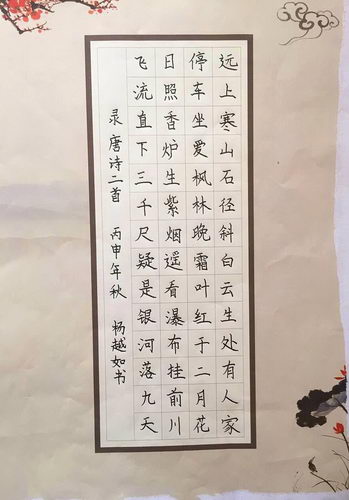 远上寒山石径斜白云生处有人家
停车坐爱枫林晚霜叶红于二月花
日照香炉生紫烟遥看瀑布挂前川
飞流直下三千尺疑是银河落九天
录唐诗二首 丙申年秋 杨越如书